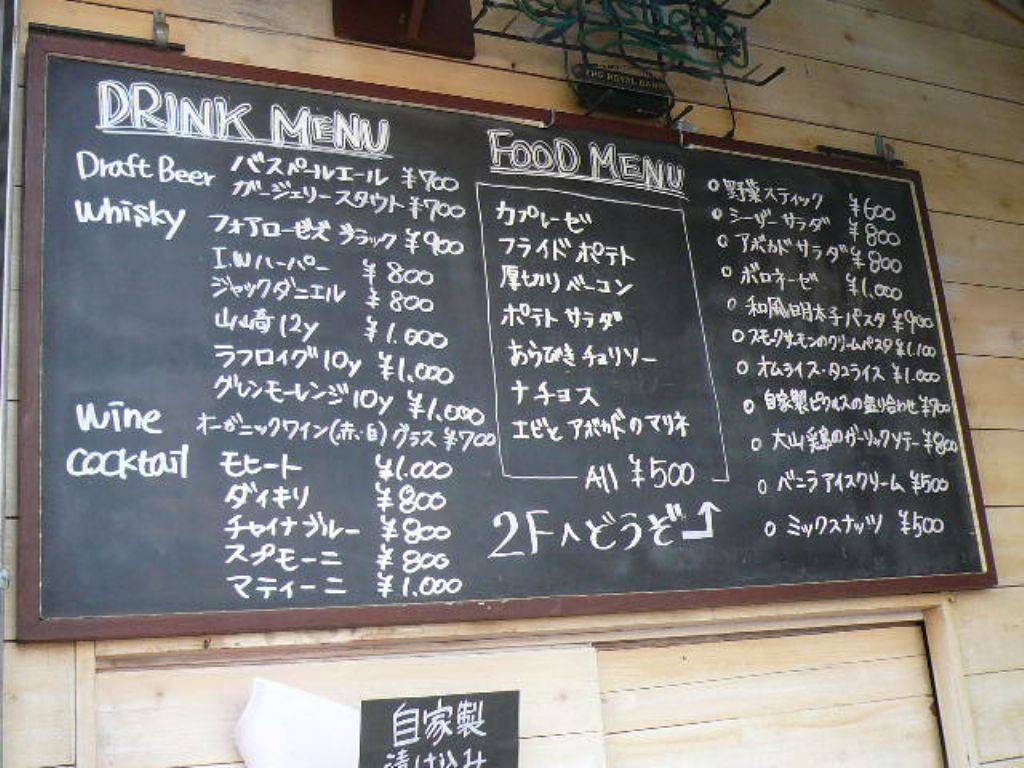 DRINK MENU
Draft Beer バスペールエール ¥700
ガージェリースタウト ¥700
Whisky フォアローゼズ ブラック ¥900
I.Wハーパー ¥800
ジャックダニエル ¥800
山崎12y ¥1.000
ラフロイグ10y ¥1.000
グレンモーレンジ10y ¥1.000
Wine オーガニックワイン(赤、白)グラス ¥700
cocktail モヒート ¥1.000
ダイキリ ¥800
チャイナブルー ¥800
スプモーニ ¥800
マティーニ ¥1.000
FOOD MENU
カプレーゼ
フライドポテト
厚切りベーコン
ポテトサラダ
あらびきチョリソー
ナチョス
エビとアボカドのマリネ
All ¥500
2Fへどうぞ
○野菜スティック ¥600
○シーザーサラダ ¥800
○アボカドサラダ ¥800
○ボロネーゼ ¥1.000
○和風明太子パスタ ¥900
○スモークサーモンのクリームパスタ ¥1.100
○オムライス・タコライス ¥1.000
○自家製ピクルスの盛り合わせ ¥700
○大山鶏のガーリックソテー ¥800
○バニラアイスクリーム ¥500
○ミックスナッツ ¥500
自家製
漬け込み